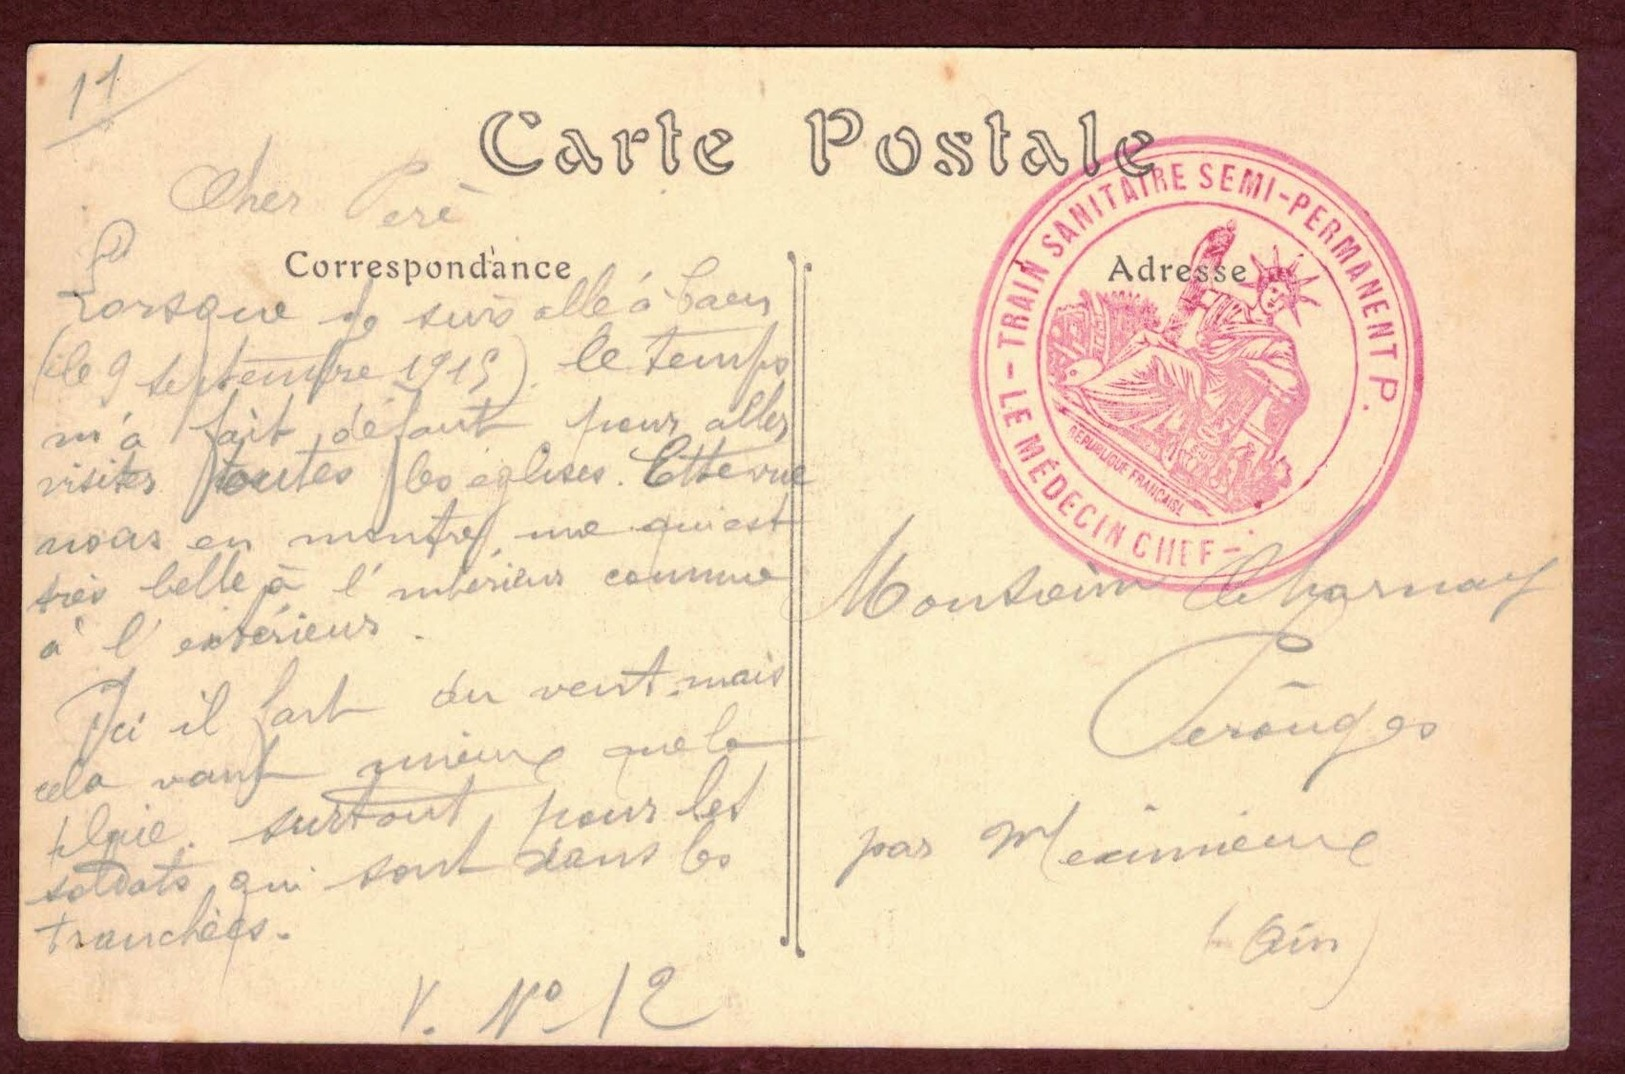 11
Carte Postale
Cher Père
Correspondance
Lorsque je suis allé à Caen
(le 9 septembre 1915) le temps
m'a fait défaut pour aller
visiter toutes les églises. Cette vue
nous en montre une qui est
très belle à l'intérieur comme
à l'extérieur.
Ici il fait du vent, mais
cela vaut mieux que la
pluie. surtout pour les
soldats qui sont dans les
tranchées.
V. No 12
LE MÉDECIN CHEF - TRAIN SANITAIRE SEMI-PERMANENT P.
REPUBLIQUE FRANÇAISE
Adresse
Monsieur Charnay
Pérouges
par Meximieux
(Ain)